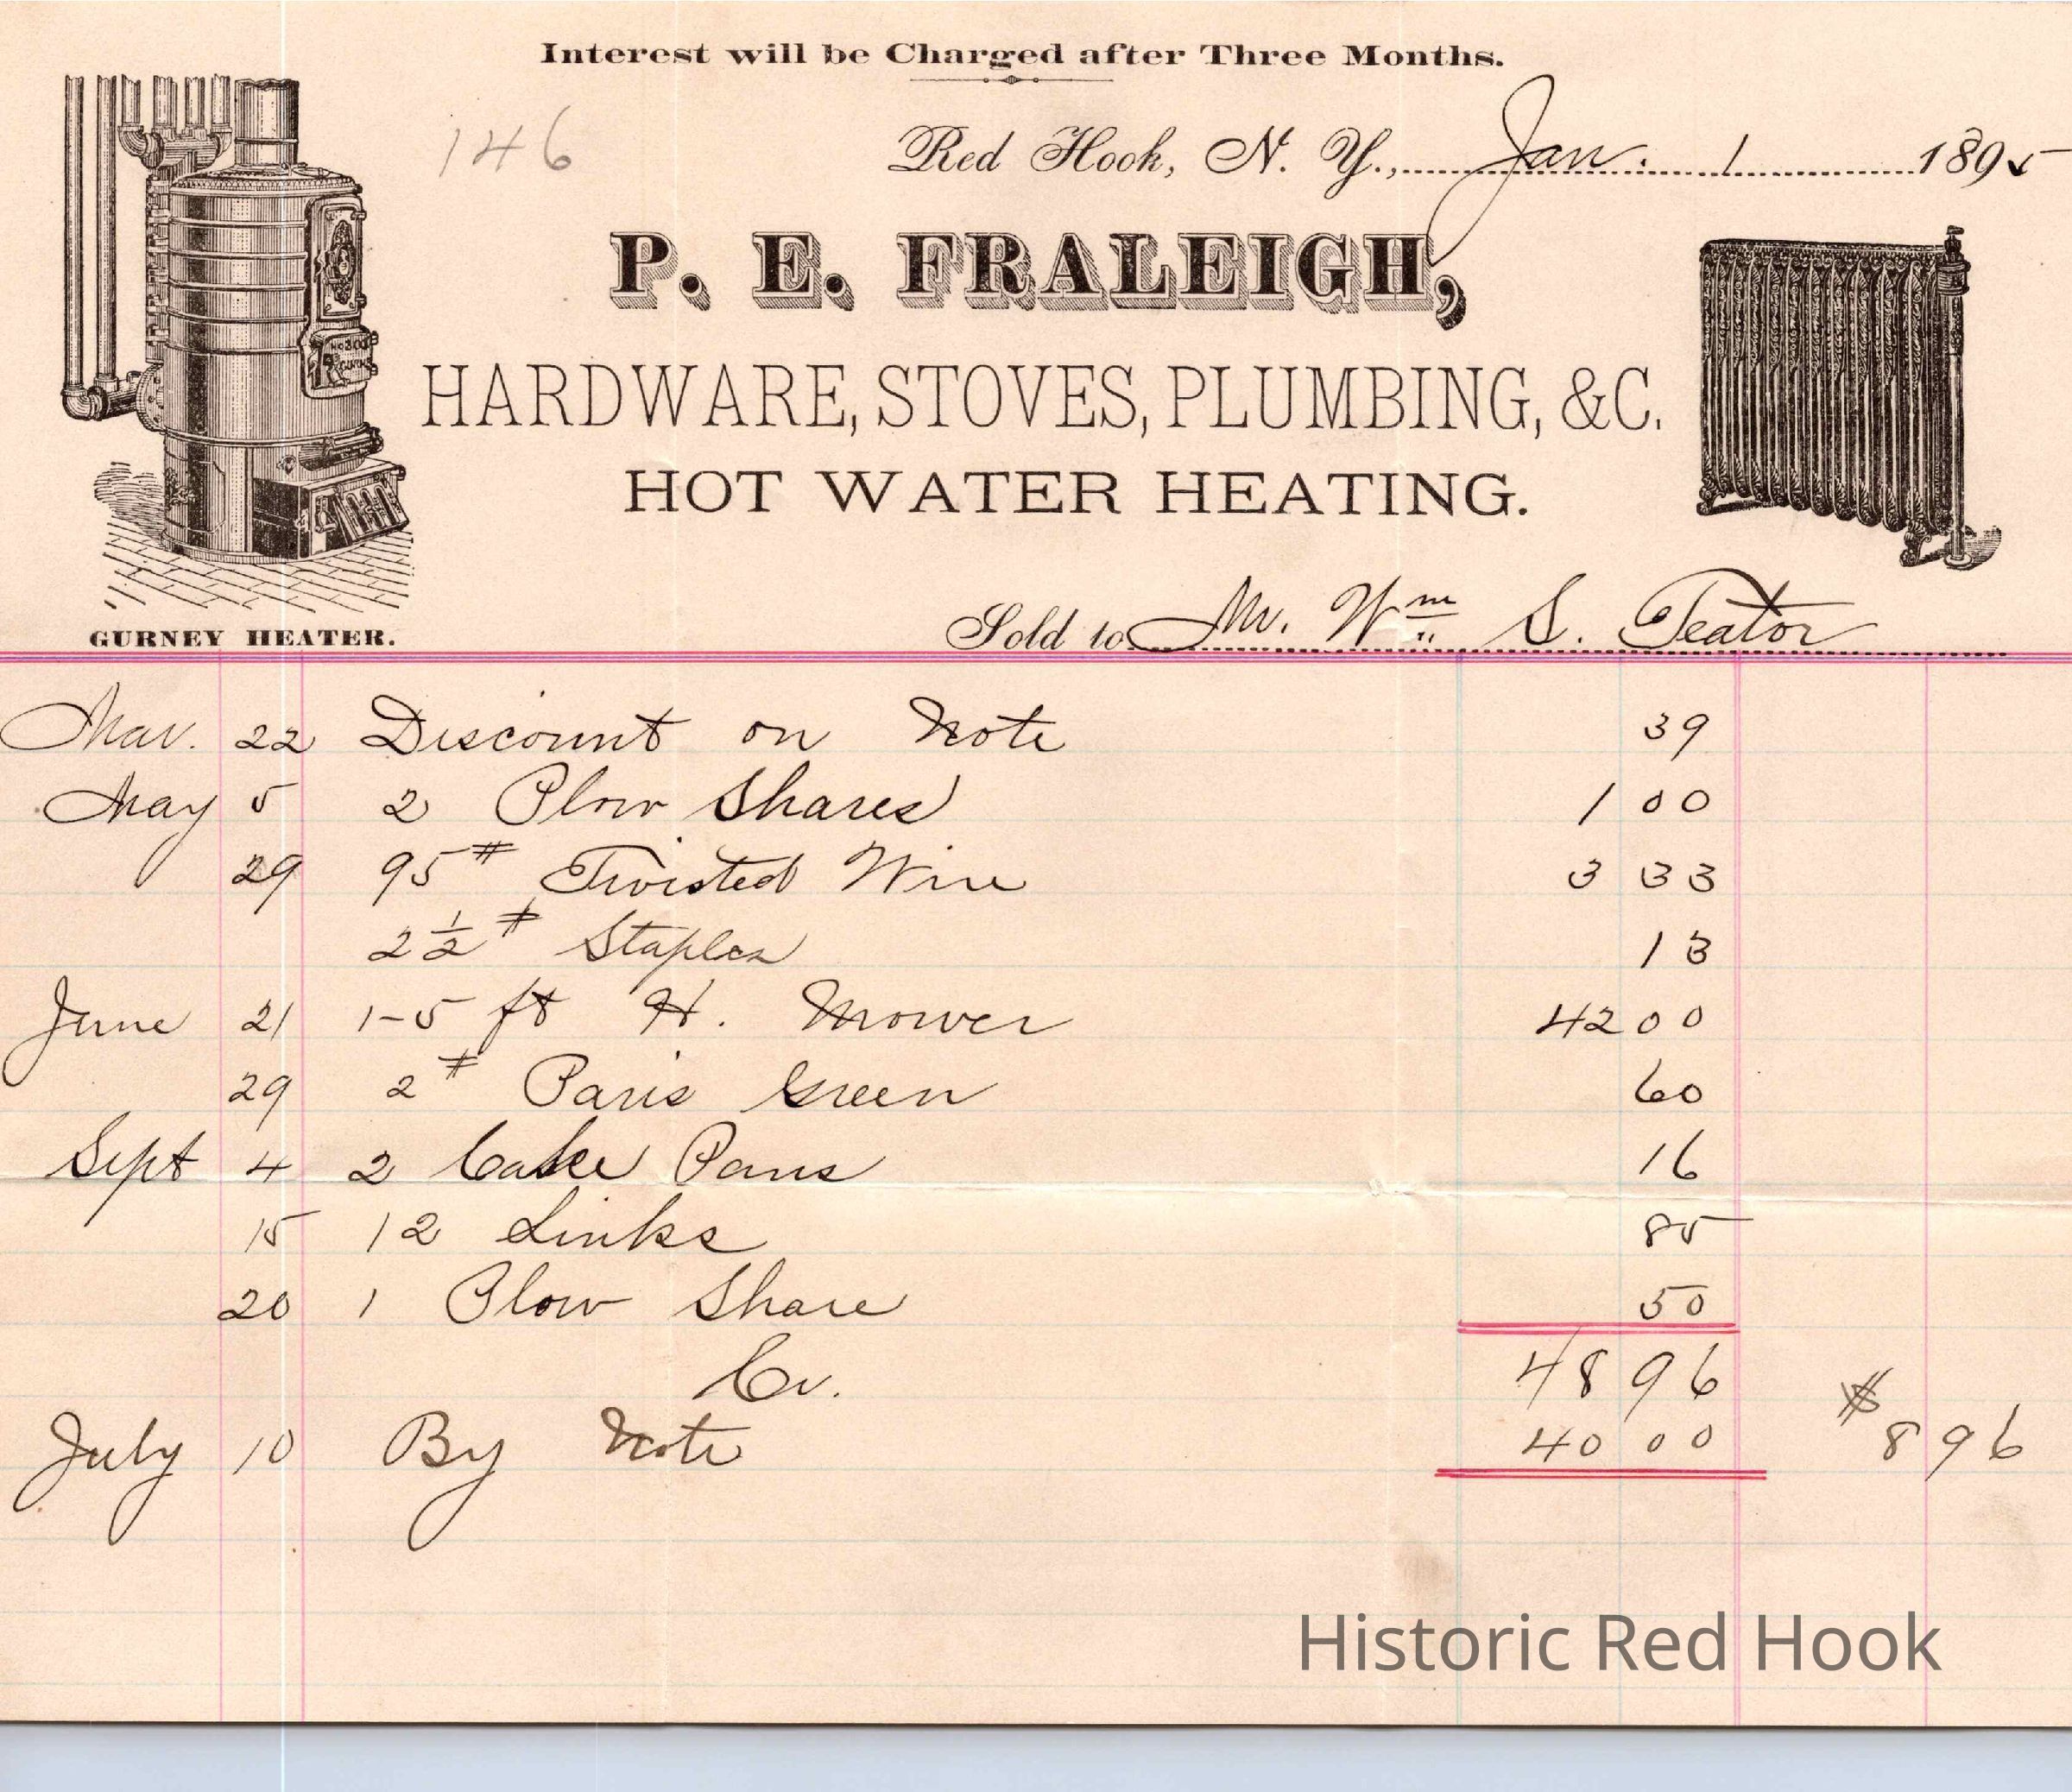 Interest will be Charged after Three Months.
146
Red Hook, N. Y., Jan. 1 1895
P. E. FRALEIGH,
HARDWARE, STOVES, PLUMBING, &C.
HOT WATER HEATING.
GURNEY HEATER.
Sold to Mr. Wm S. Teator
Mar. 22 Discount on Note 39
May 5 2 Plow Shares 1 00
29 95# Twisted Wire 3 33
2 1/2# Staples 13
June 21 1-5 ft H. Mower 42 00
29 2# Paris Green 60
Sept 4 2 Cake Pans 16
15 12 Links 85
20 1 Plow Share 50
48 96
Cr.
July 10 By Note 40 00 $8 96
Historic Red Hook